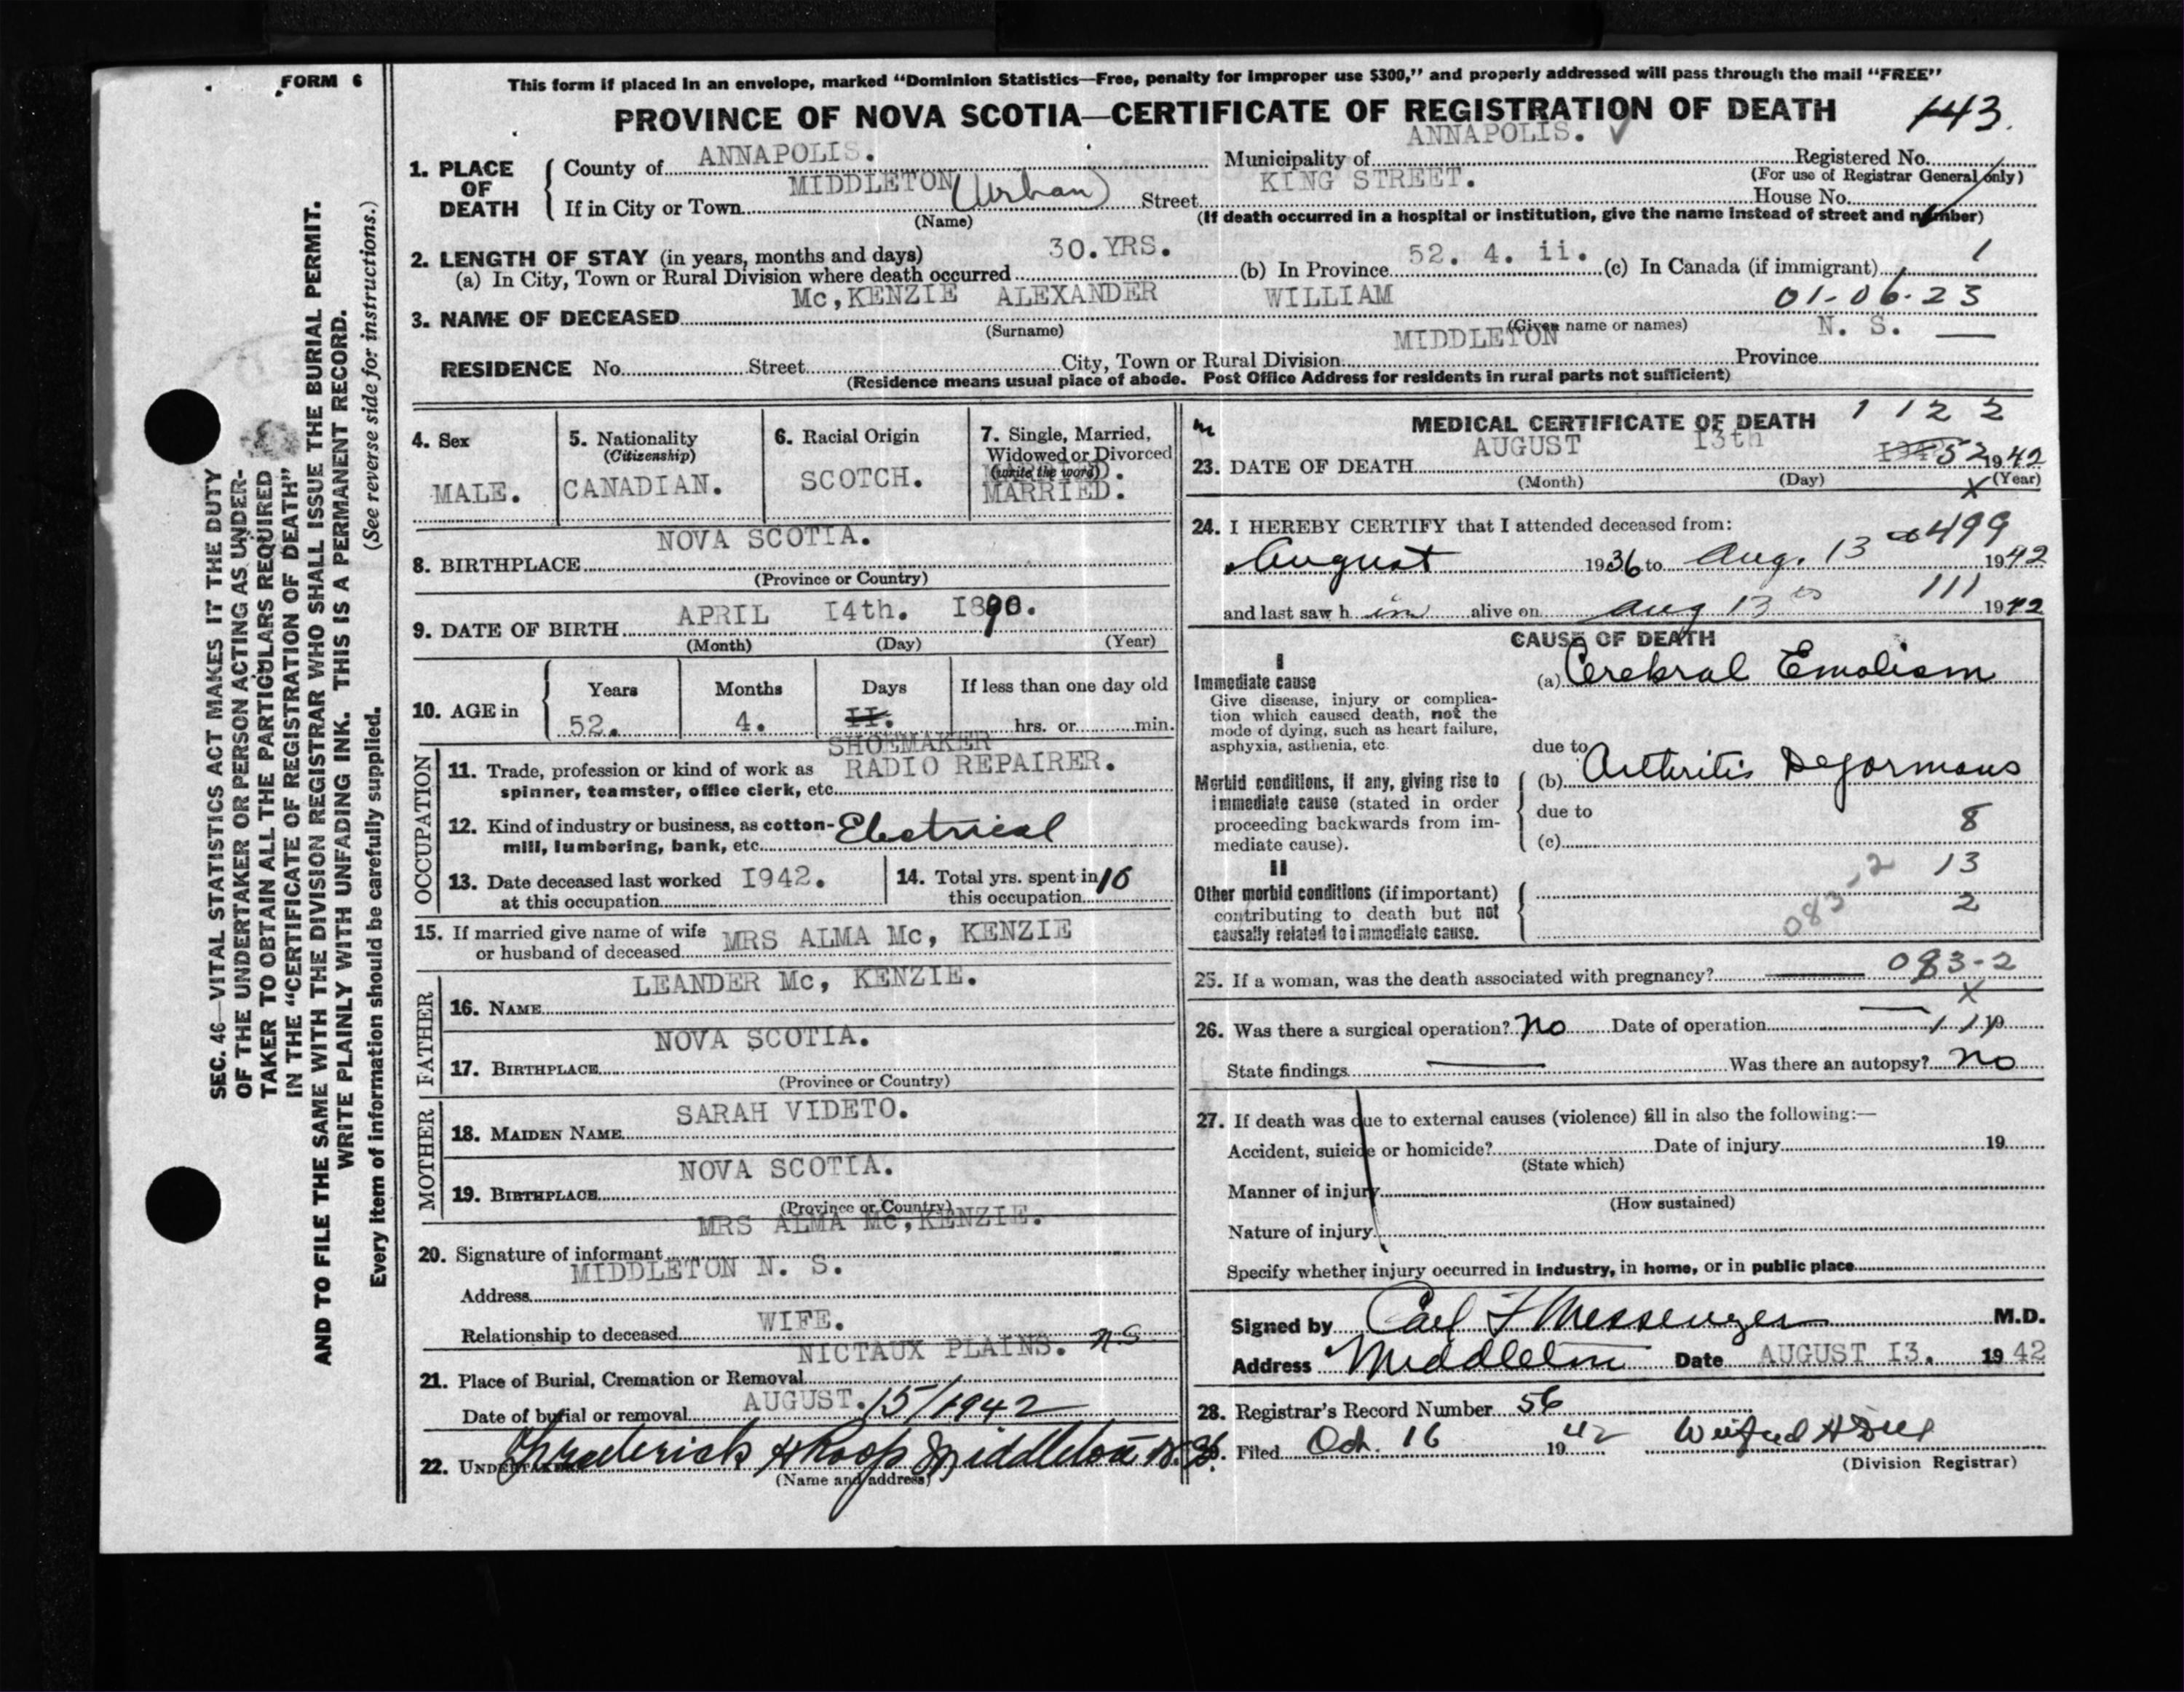 FORM 6
This form if placed in an envelope, marked "Dominion Statistics—Free, penalty for improper use $300," and properly addressed will pass through the mail "FREE"
PROVINCE OF NOVA SCOTIA—CERTIFICATE OF REGISTRATION OF DEATH
143.
SEC. 46—VITAL STATISTICS ACT MAKES IT THE DUTY
OF THE UNDERTAKER OR PERSON ACTING AS UNDER-
TAKER TO OBTAIN ALL THE PARTICULARS REQUIRED
IN THE "CERTIFICATE OF REGISTRATION OF DEATH"
AND TO FILE THE SAME WITH THE DIVISION REGISTRAR WHO SHALL ISSUE THE BURIAL PERMIT.
WRITE PLAINLY WITH UNFADING INK. THIS IS A PERMANENT RECORD.
Every item of information should be carefully supplied. (See reverse side for instructions.)
1. PLACE OF DEATH
County of ANNAPOLIS. Municipality of ANNAPOLIS. Registered No.
(For use of Registrar General only)
If in City or Town MIDDLETON (Urban) Street KING STREET. House No.
(Name) (If death occurred in a hospital or institution, give the name instead of street and number)
2. LENGTH OF STAY (in years, months and days)
(a) In City, Town or Rural Division where death occurred 30. YRS. (b) In Province 52. 4. ii. (c) In Canada (if immigrant) 1
3. NAME OF DECEASED Mc,KENZIE ALEXANDER WILLIAM 01-06-23
(Surname) (Given name or names)
RESIDENCE No. Street City, Town or Rural Division MIDDLETON Province N. S.
(Residence means usual place of abode. Post Office Address for residents in rural parts not sufficient)
4. Sex
MALE.
5. Nationality
(Citizenship)
CANADIAN.
6. Racial Origin
SCOTCH.
7. Single, Married,
Widowed or Divorced
(write the word)
MARRIED.
8. BIRTHPLACE NOVA SCOTIA.
(Province or Country)
9. DATE OF BIRTH APRIL I4th. I890.
(Month) (Day) (Year)
10. AGE in
Years Months Days If less than one day old
52. 4. II. hrs. or min.
OCCUPATION
SHOEMAKER
11. Trade, profession or kind of work as RADIO REPAIRER.
spinner, teamster, office clerk, etc.
12. Kind of industry or business, as cotton- Electrical
mill, lumbering, bank, etc.
13. Date deceased last worked I942.
at this occupation
14. Total yrs. spent in 16
this occupation
15. If married give name of wife MRS ALMA Mc, KENZIE
or husband of deceased
FATHER
16. NAME LEANDER Mc, KENZIE.
17. BIRTHPLACE NOVA SCOTIA.
(Province or Country)
MOTHER
18. MAIDEN NAME SARAH VIDETO.
19. BIRTHPLACE NOVA SCOTIA.
(Province or Country)
20. Signature of informant MRS ALMA Mc,KENZIE.
Address MIDDLETON N. S.
Relationship to deceased WIFE.
21. Place of Burial, Cremation or Removal NICTAUX PLAINS. NS
Date of burial or removal AUGUST. 15/1942
22. UNDERTAKER Frederick H Roop Middleton N.S.
(Name and address)
MEDICAL CERTIFICATE OF DEATH 1 1 2 2
23. DATE OF DEATH AUGUST I3th 52 1942
(Month) (Day) (Year)
24. I HEREBY CERTIFY that I attended deceased from:
499
August 1936 to Aug. 13 1942
111
and last saw h im alive on Aug 13 1942
CAUSE OF DEATH
I
Immediate cause (a) Cerebral Emolism
Give disease, injury or complica-
tion which caused death, not the
mode of dying, such as heart failure,
asphyxia, asthenia, etc.
due to
Morbid conditions, if any, giving rise to (b) Arthritis Deformans
immediate cause (stated in order
proceeding backwards from im-
mediate cause).
due to 8
(c)
II 13
Other morbid conditions (if important)
contributing to death but not
causally related to immediate cause.
083-2 2
25. If a woman, was the death associated with pregnancy? 083-2
26. Was there a surgical operation? No Date of operation 19
State findings Was there an autopsy? No
27. If death was due to external causes (violence) fill in also the following:—
Accident, suicide or homicide? Date of injury 19
(State which)
Manner of injury
(How sustained)
Nature of injury
Specify whether injury occurred in industry, in home, or in public place
Signed by Carl F Messenger M.D.
Address Middleton Date AUGUST I3. 19 42
28. Registrar's Record Number 56
29. Filed Oct. 16 1942
(Division Registrar)